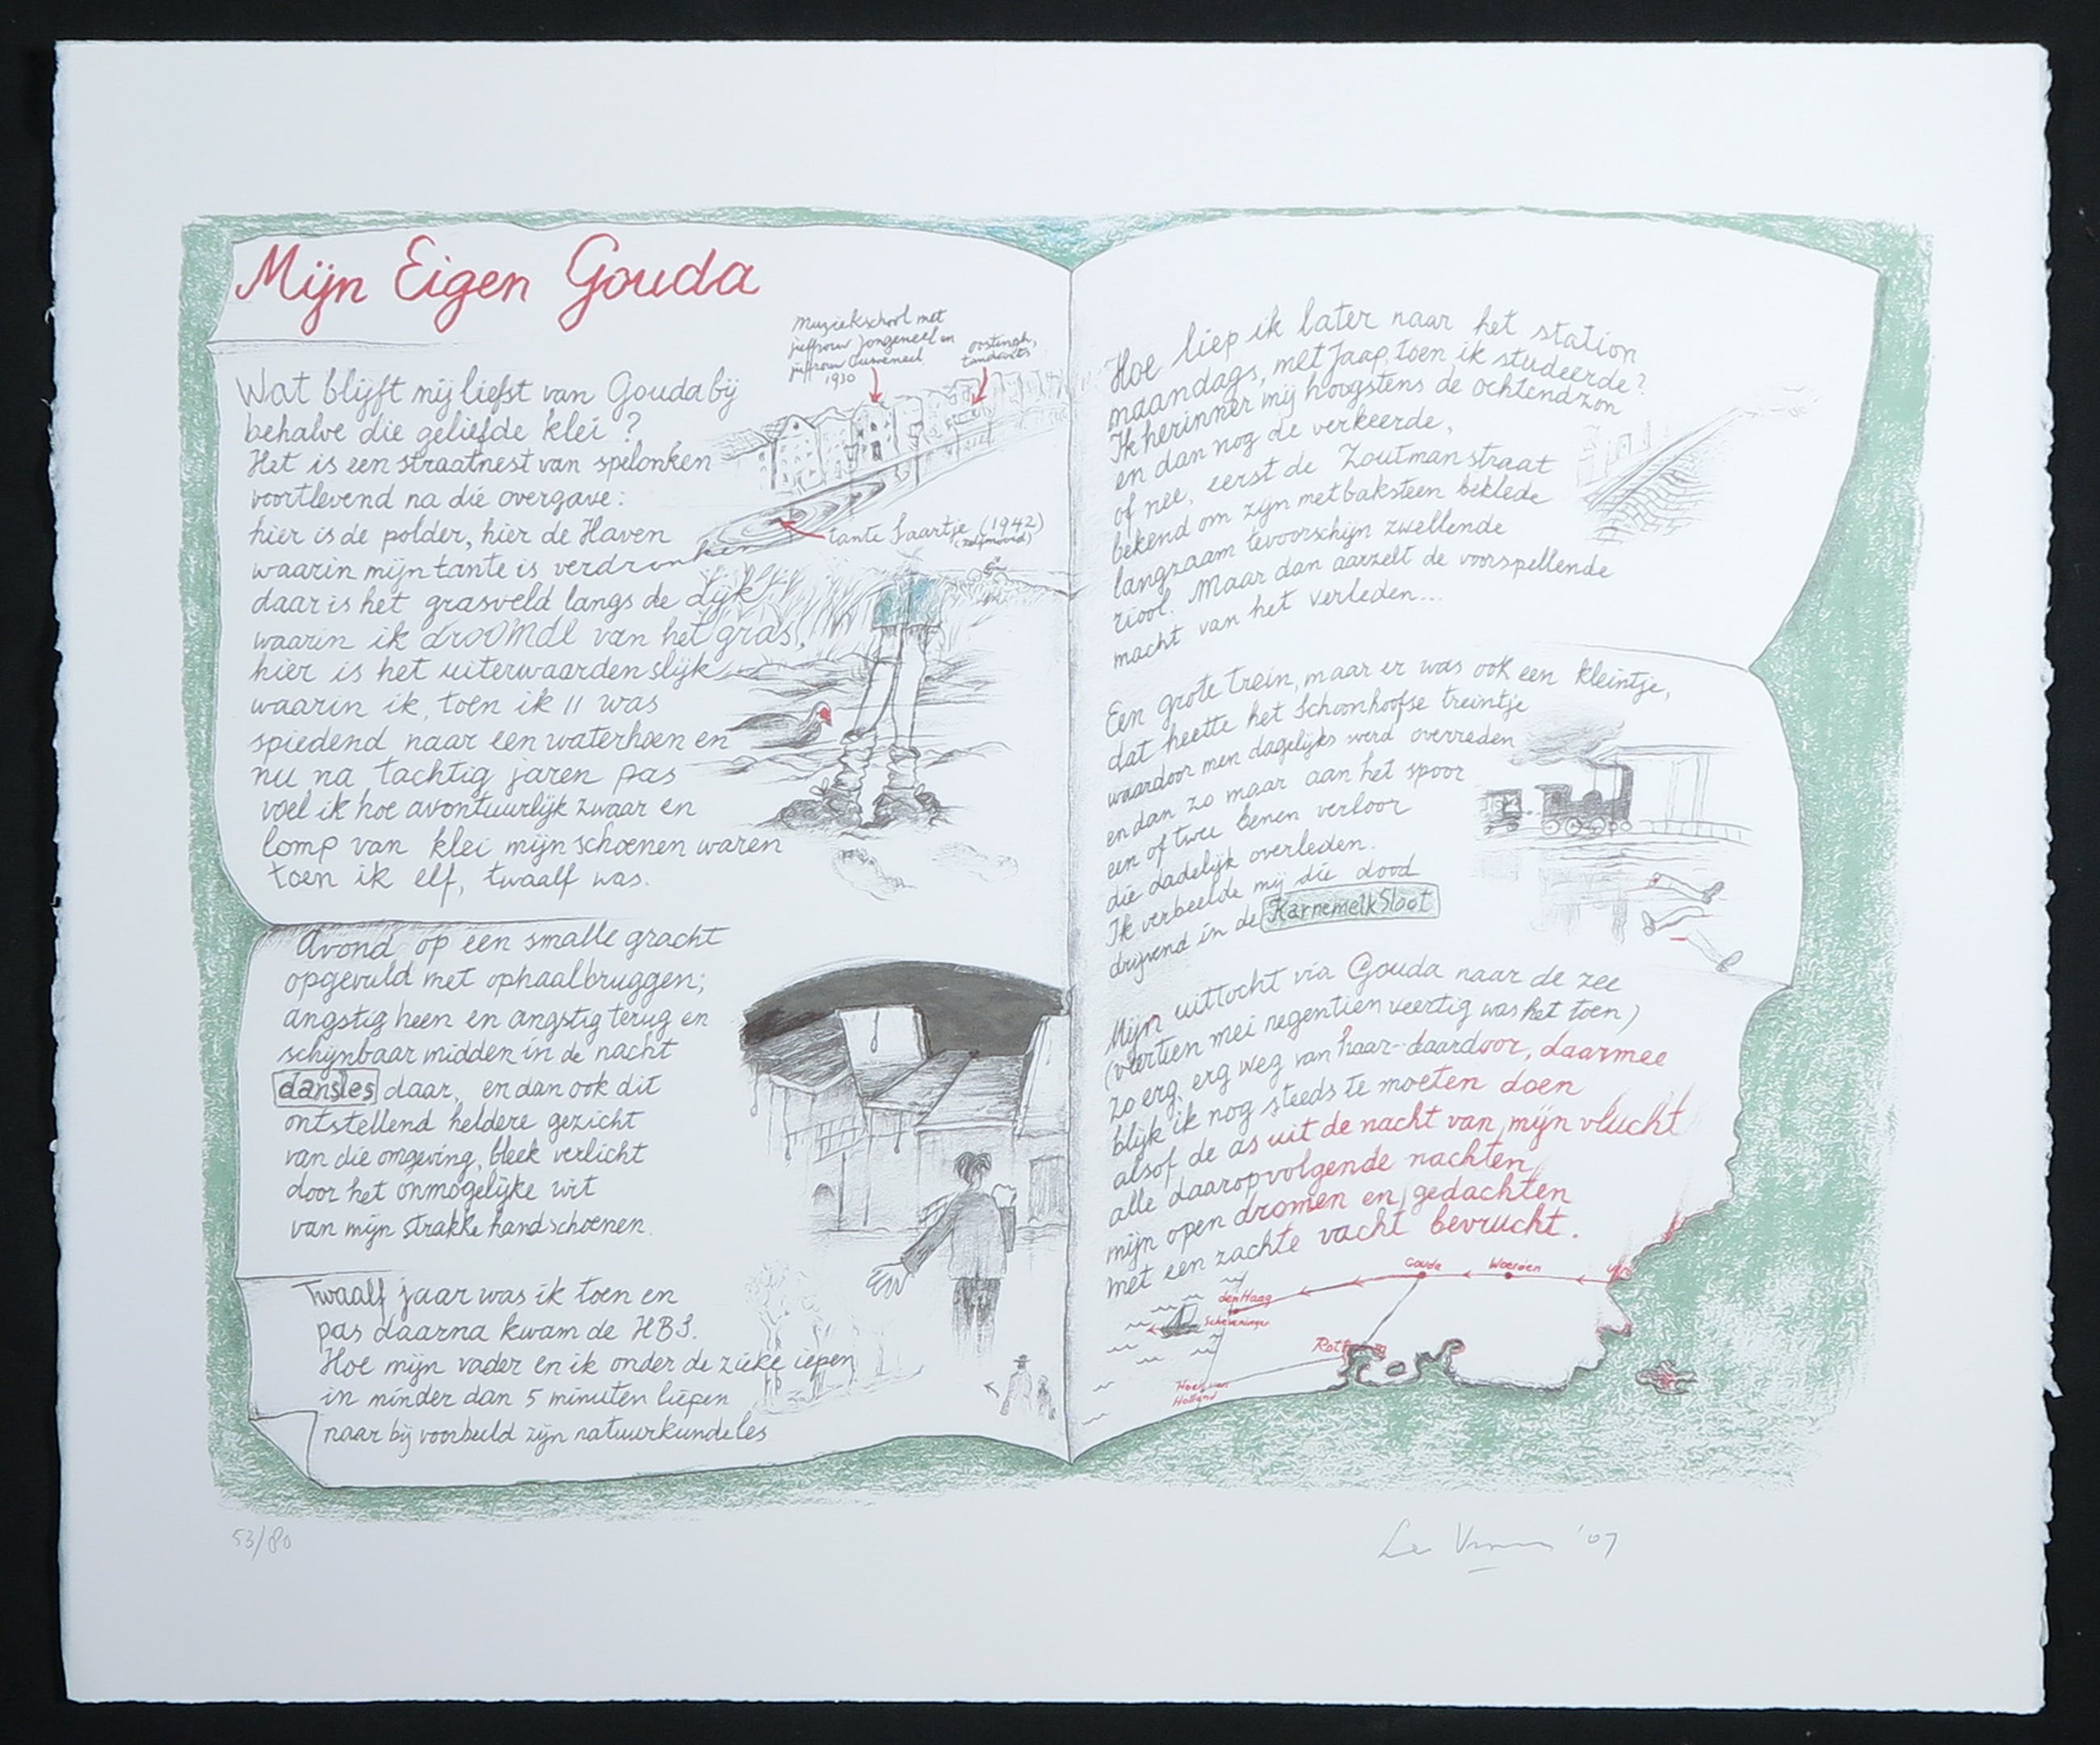 Mijn Eigen Gouda
Muziekschool met
juffrouw Jongeneel en
juffrouw
1930
oostingh,
tandarts
Wat blijft mij liefst van Gouda bij
behalve die geliefde klei?
Het is een straatnest van spelonken
voortlevend na die overgave:
hier is de polder, hier de Haven
waarin mijn tante is verdronken
tante Saartje (1942)
(zelfmoord)
daar is het grasveld langs de dijk
waarin ik droomde van het gras,
hier is het uiterwaardenslijk
waarin ik, toen ik 11 was
spiedend naar een waterhoen en
nu na tachtig jaren pas
voel ik hoe avontuurlijk zwaar en
lomp van klei mijn schoenen waren
toen ik elf, twaalf was.
Avond op een smalle gracht
opgevuld met ophaalbruggen;
angstig heen en angstig terug en
schijnbaar midden in de nacht
dansles daar, en dan ook dit
ontstellend heldere gezicht
van die omgeving, bleek verlicht
door het onmogelijke wit
van mijn strakke handschoenen.
Twaalf jaar was ik toen en
pas daarna kwam de HBS.
Hoe mijn vader en ik onder de zieke iepen
in minder dan 5 minuten liepen
naar bij voorbeeld zijn natuurkundeles
Hoe liep ik later naar het station
maandags, met Jaap, toen ik studeerde?
Ik herinner mij hoogstens de ochtendzon
en dan nog de verkeerde,
of nee, eerst de Zoutmanstraat
bekend om zijn met baksteen beklede
langzaam tevoorschijn zwellende
riool. Maar dan aarzelt de voorspellende
macht van het verleden...
Een grote trein, maar er was ook een kleintje,
dat heette het Schoonhoofse treintje
waardoor men dagelijks werd overreden
en dan zo maar aan het spoor
een of twee benen verloor
die dadelijk overleden.
Ik verbeelde mij die dood
drijvend in de KarnemelkSloot
Mijn uittocht via Gouda naar de zee
(veertien mei negentien veertig was het toen)
zo erg, erg weg van haar - daardoor, daarmee
blijk ik nog steeds te moeten doen
alsof de as uit de nacht van mijn vlucht
alle daaropvolgende nachten
mijn open dromen en gedachten
met een zachte vacht bevrucht.
Gouda
Woerden
den Haag
Scheveningen
Hoek van
Holland
53/80
Leo Vroman '07